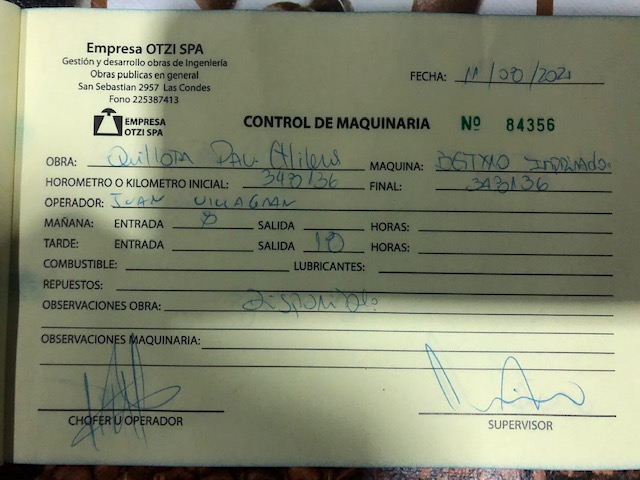 Empresa OTZI SPA
Gestión y desarrollo obras de Ingeniería
Obras publicas en general
San Sebastian 2957 Las Condes
Fono 225387413
FECHA: /2021
EMPRESA
OTZI SPA
CONTROL DE MAQUINARIA Nº 84356
OBRA: Quillota MAQUINA:
HOROMETRO O KILOMETRO INICIAL: FINAL:
OPERADOR: JUAN VILLAGRAN
MAÑANA: ENTRADA 8 SALIDA HORAS:
TARDE: ENTRADA SALIDA 18 HORAS:
COMBUSTIBLE: LUBRICANTES:
REPUESTOS:
OBSERVACIONES OBRA: disponible
OBSERVACIONES MAQUINARIA:
CHOFER U OPERADOR SUPERVISOR